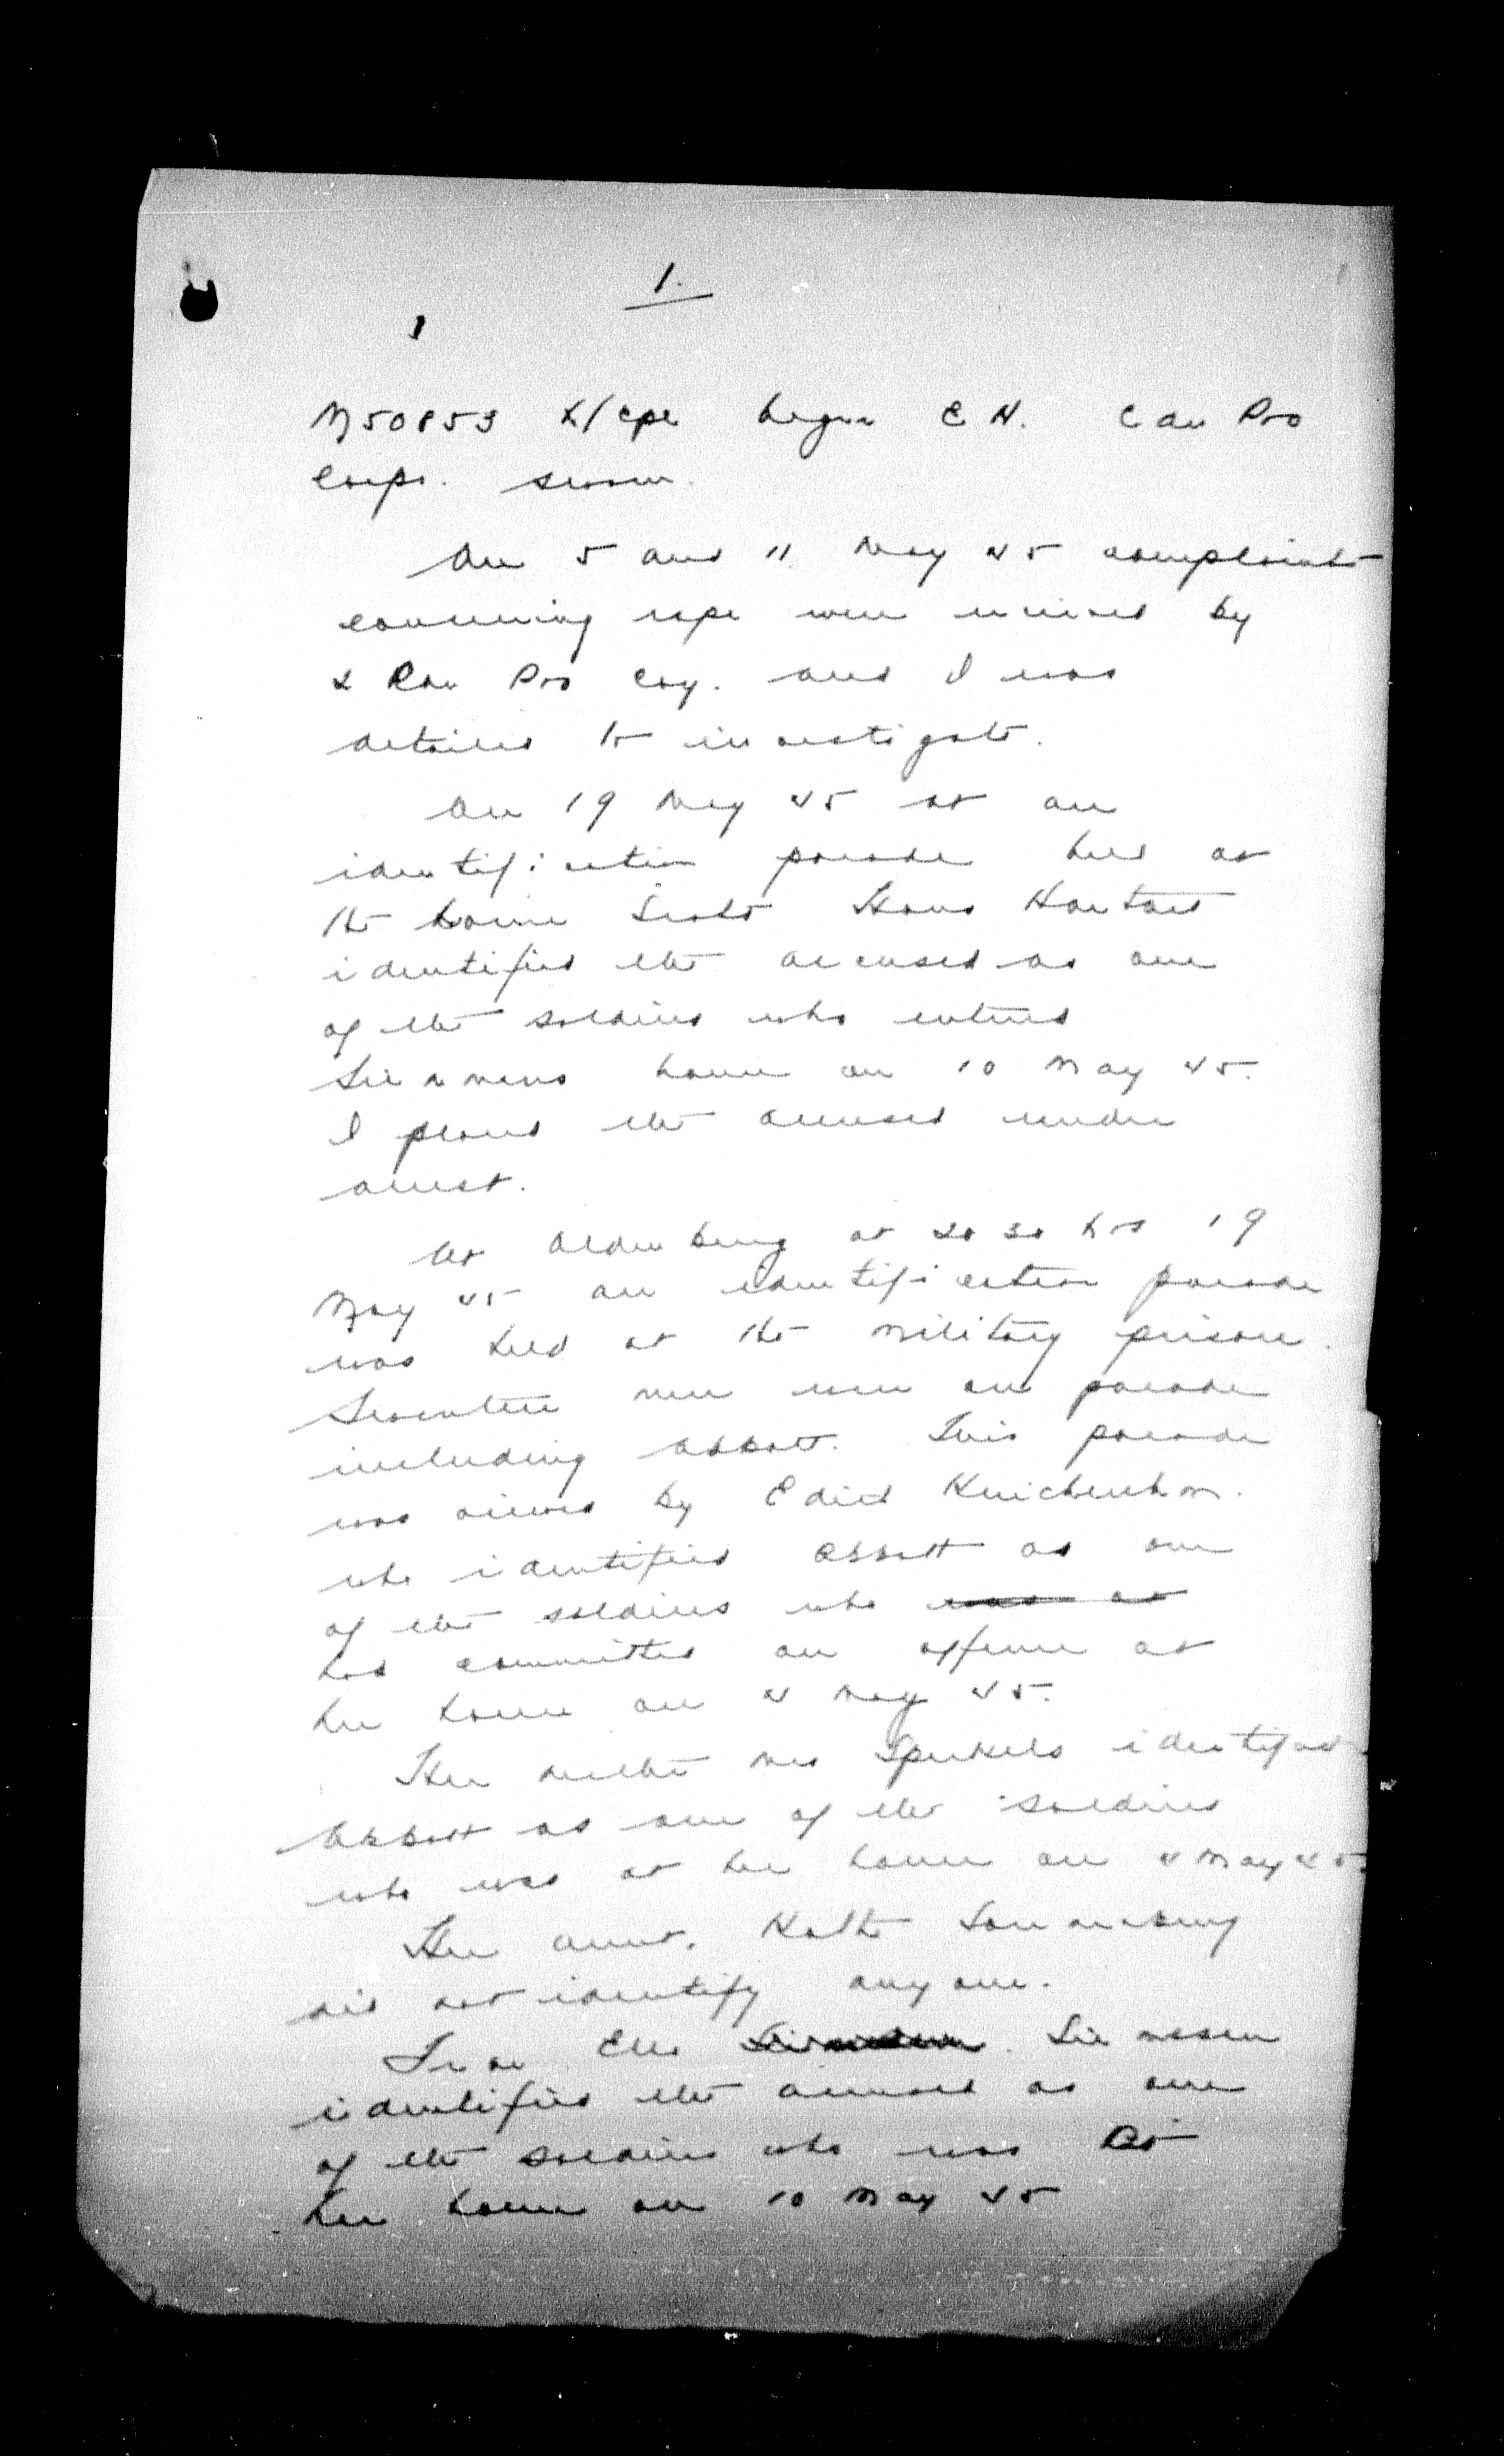 1.
M50853 L/Cpl Logan E H. Can Pro
Corps. sworn.
On 5 and 11 May 45 complaints
concerning rape were received by
2 Can Pro Coy. and I was
detailed to investigate.
On 19 May 45 at an
identification parade held at
the Lorne Scots Hans
identified the accused as one
of the soldiers who entered
home on 10 May 45.
I placed the accused under
arrest.
At Oldenburg at 2030 hrs 19
May 45 an identification parade
was held at the military prison.
Seventeen men were on parade
including Abbott. This parade
was viewed by Edith
who identified Abbott as one
of the soldiers who was at
had committed an offence at
her home on 4 May 45.
Her mother Mrs identified
Abbott as one of the soldiers
who was at her home on 4 May 45.
Her aunt. Kathe
did not identify anyone.
Frau Siemssen
identified the accused as one
of the soldiers who was at
her home on 10 May 45